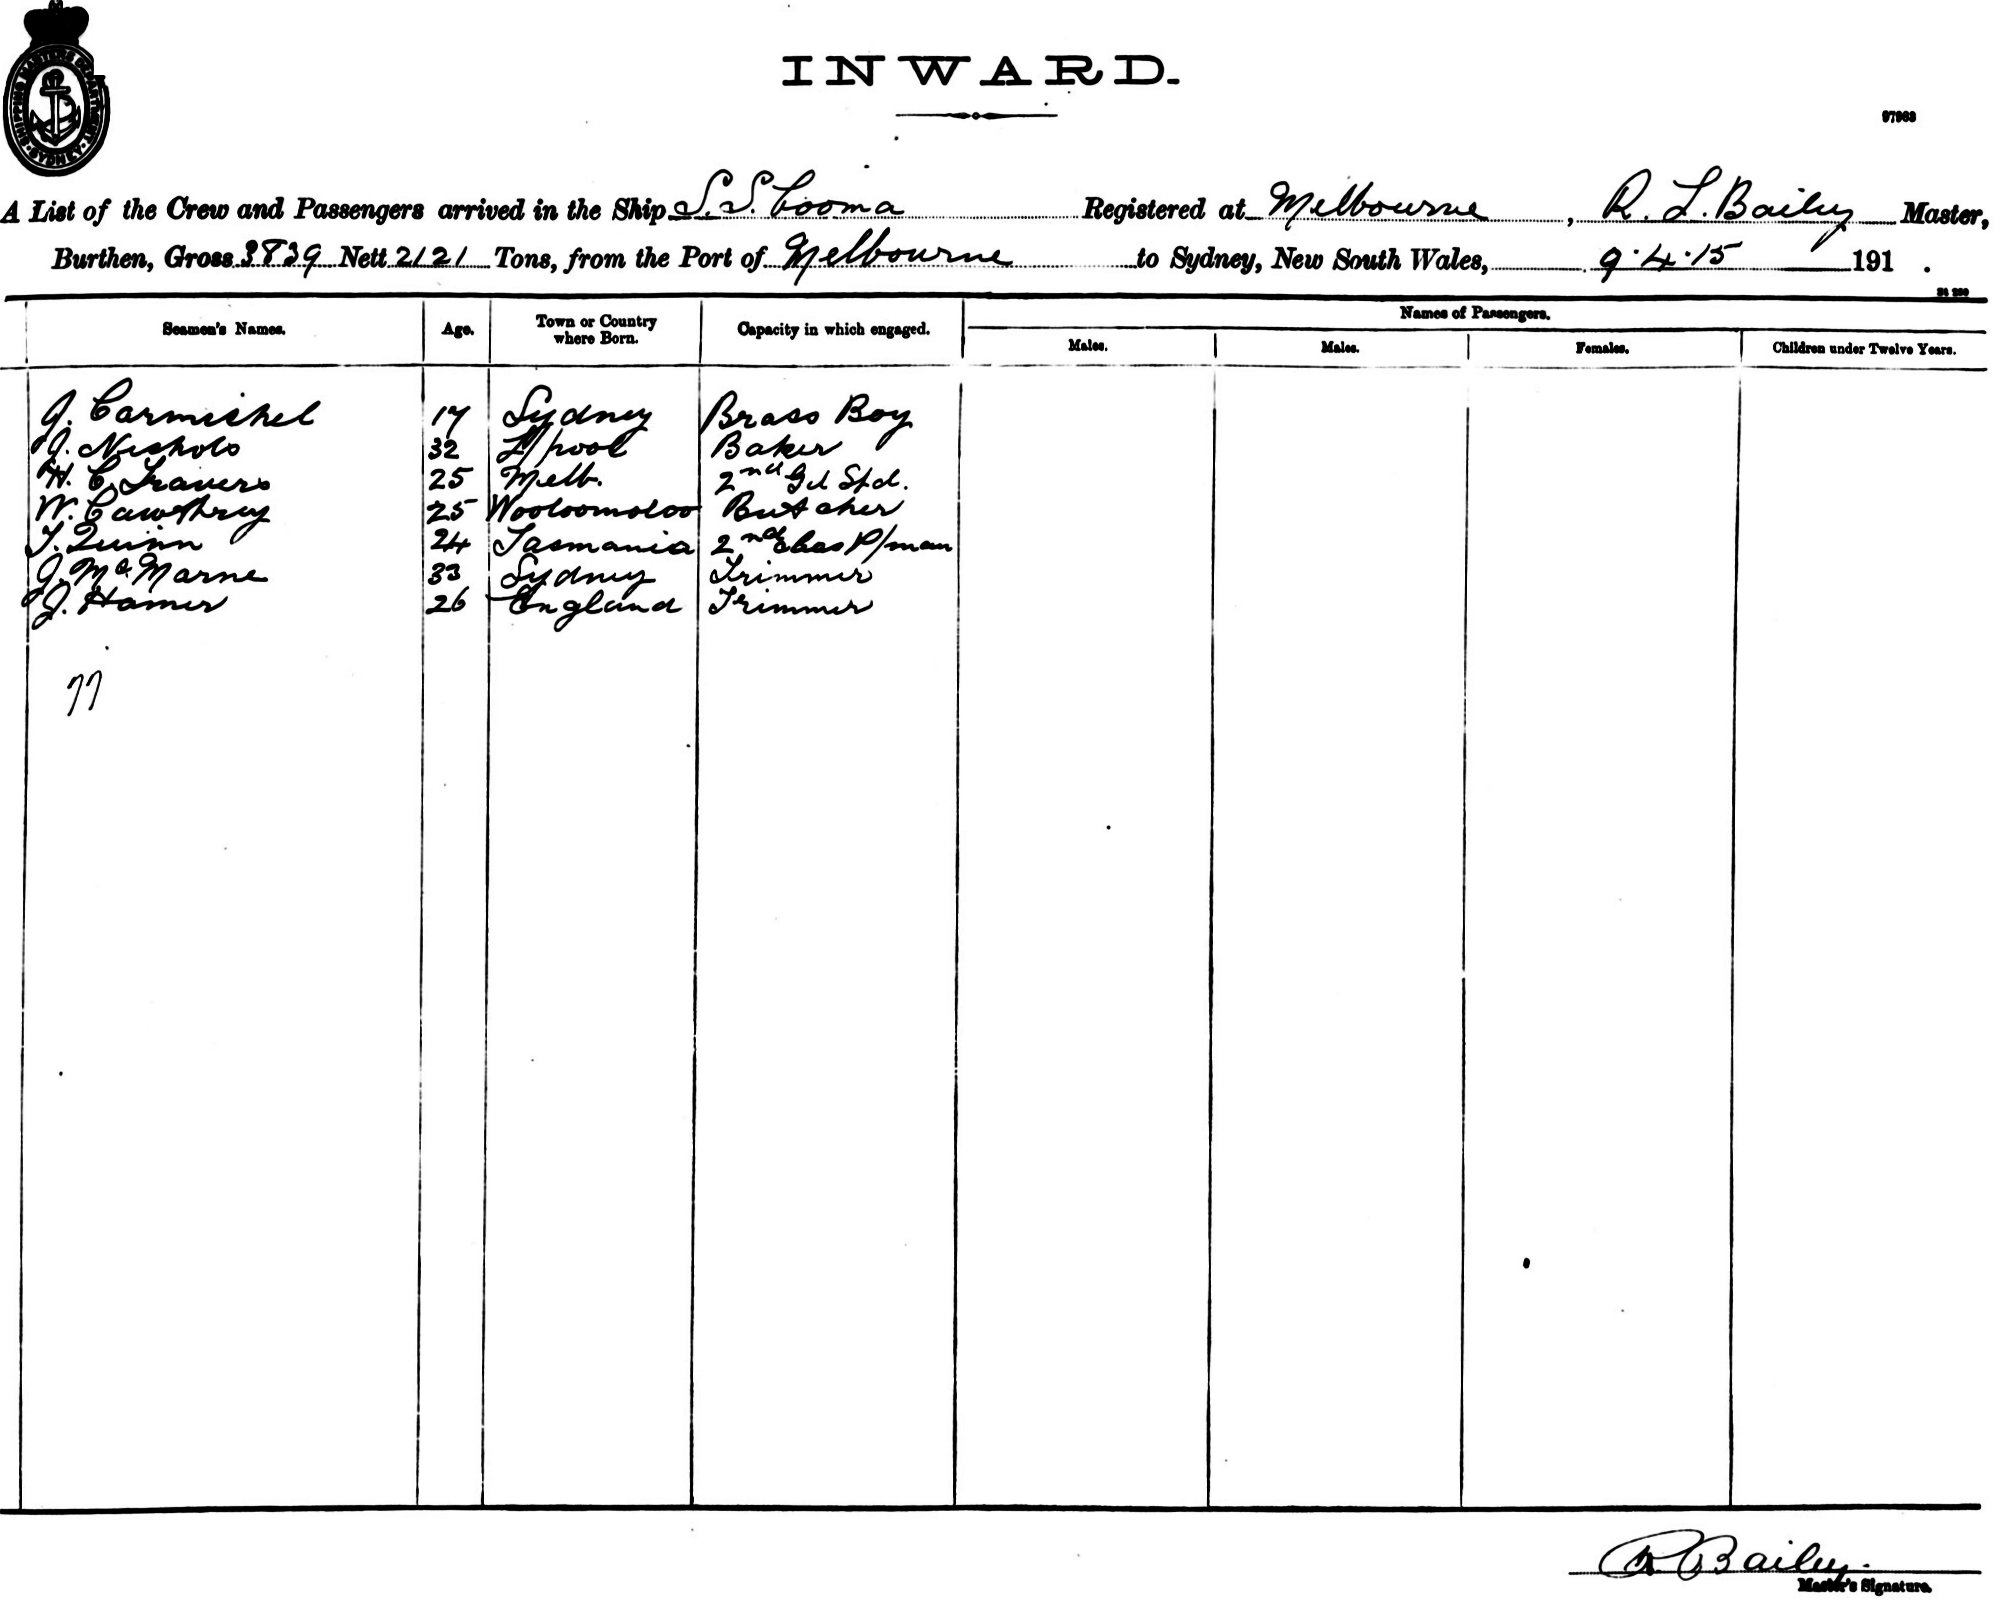 SHIPPING MASTERS DEPARTMENT SYDNEY
INWARD.
97963
A List of the Crew and Passengers arrived in the Ship S.S. Cooma Registered at Melbourne, R. L. Bailey Master,
Burthen, Gross 3839 Nett 2121 Tons, from the Port of Melbourne to Sydney, New South Wales, 9.4.15 191 .
Names of Passengers.
Seamen's Names. Age. Town or Country where Born. Capacity in which engaged. Males. Males. Females. Children under Twelve Years.
J. Carmichel 17 Sydney Brass Boy
J. Nichols 32 L/pool Baker
H. C. Travers 25 Melb. 2nd Gd Std.
W. Cawthrey 25 Wooloomoloo Butcher
T. Quinn 24 Tasmania 2nd Class P/man
J. Mc Marne 33 Sydney Trimmer
J. Hamer 26 England Trimmer
77
R. Bailey.
Master's Signature.